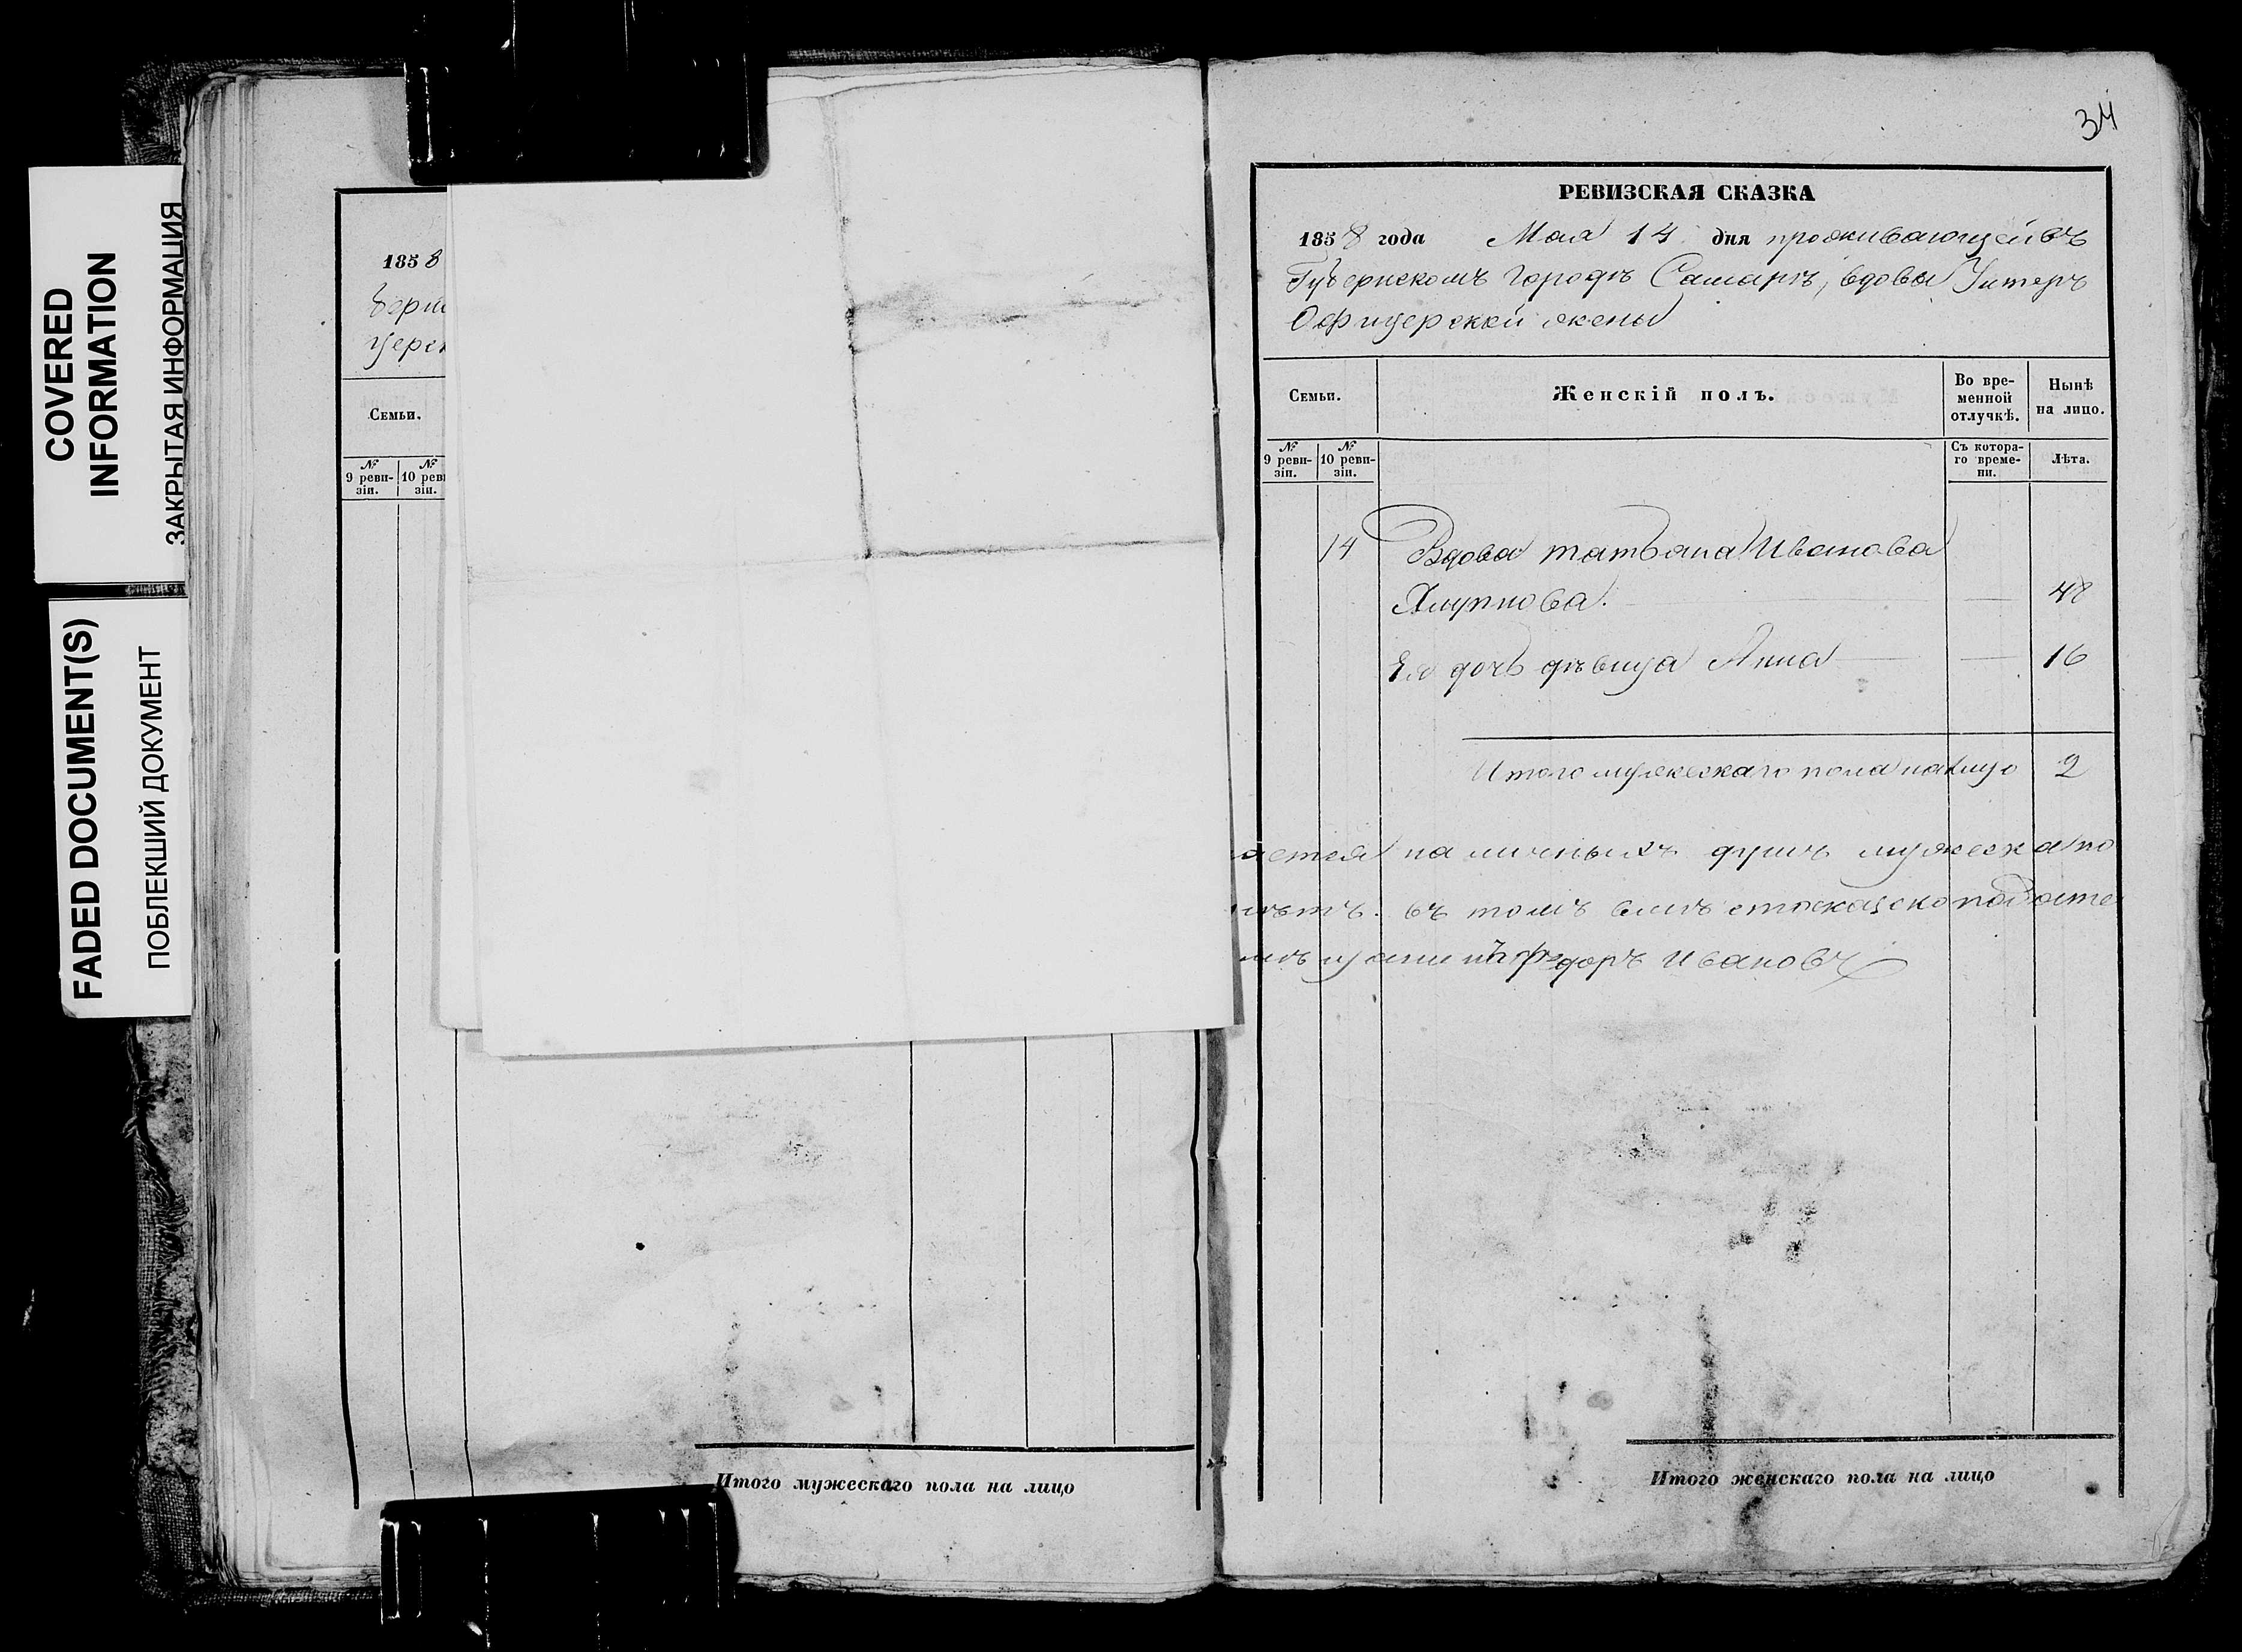 COVERED
INFORMATION
ЗАКРЫТАЯ ИНФОРМАЦИЯ
FADED DOCUMENT(S)
ПОБЛЕКШИЙ ДОКУМЕНТ
1858
Семьи.
№ 9 реви-зіи.
№ 10 реви
зіи.
Итого мужескаго пола на лицо
34
РЕВИЗСКАЯ СКАЗКА
1858 года Мая 14 дня проживающей въ
Губернскомъ городѣ Самарѣ, вдовы Унтеръ
Офицерской жены
Семьи.
Женскій полъ.
Во вре-
менной
отлучкѣ.
Нынѣ
на лицо.
№
9 реви-
зіи.
№
10 реви-
зіи.
Съ котора-
го време-
ни.
Лѣта.
14 Вдова татьана Иванова
48
Ея дочь дѣвица Анна 16
Итого мужескаго пола налицо 2
наличныхъ душъ мужеска по
въ томъ
федоръ Ивановъ
Итого женскаго пола на лицо